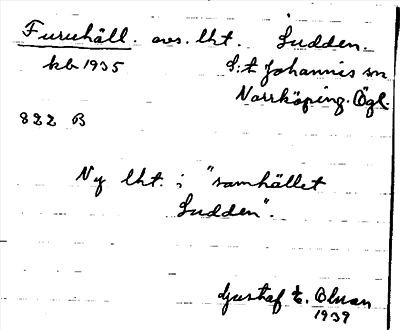 Furuhäll. avs. lht. Sudden.
kb 1935 S:t Johannis sn
Norrköping. Ögl.
822 B
Ny lht. i "samhället
Sudden".
Gustaf E. Olsson
1939